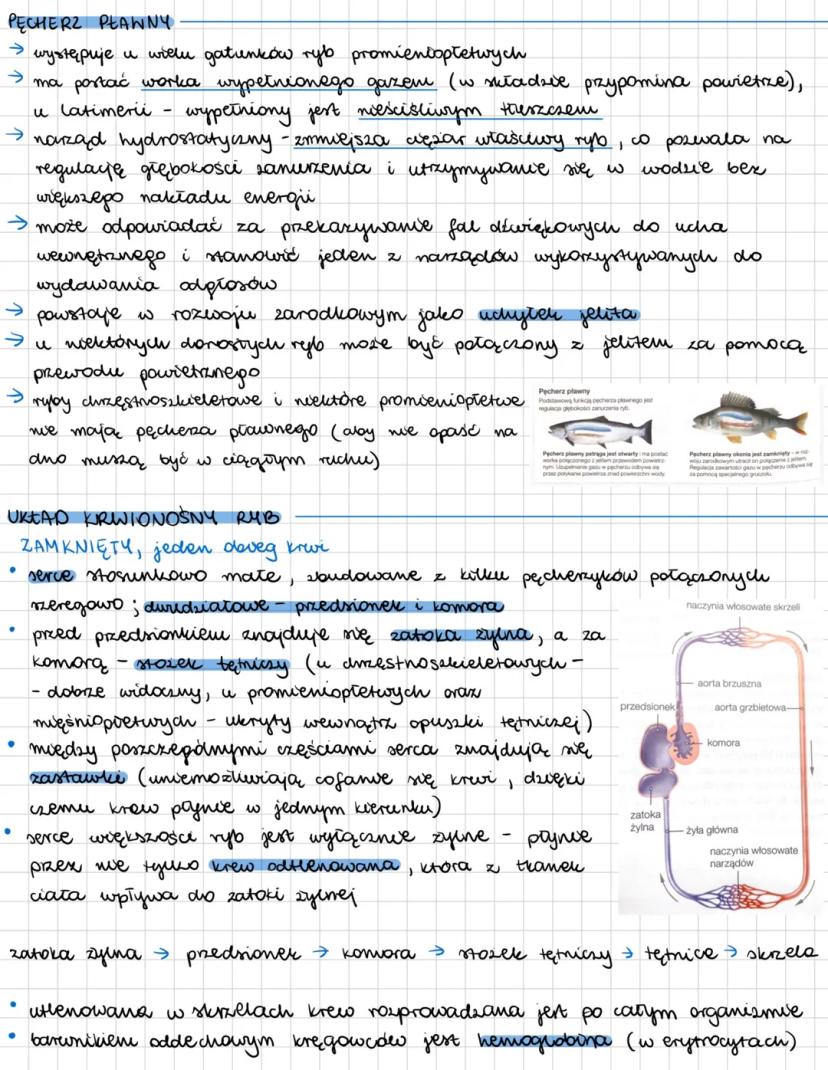 PĘCHERZ PŁAWNY
→ występuje u wielu gatunków ryb promieniopłetwych
→ ma postać worka wypełnionego gazem (w składzie przypomina powietrze),
u latimerii - wypełniony jest nieściśliwym tłuszczem
→ narząd hydrostatyczny - zmniejsza ciężar właściwy ryb, co pozwala na
regulację głębokości zanurzenia i utrzymywanie się w wodzie bez
większego nakładu energii
→ może odpowiadać za przekazywanie fal dźwiękowych do ucha
wewnętrznego i stanowić jeden z narządów wykorzystywanych do
wydawania odgłosów
→ powstaje w rozwoju zarodkowym jako uchyłek jelita
→ u niektórych dorosłych ryb może być połączony z jelitem za pomocą
przewodu powietrznego
→ ryby chrzęstnoszkieletowe i niektóre promieniopłetwe
nie mają pęcherza pławnego (aby nie opaść na
dno muszą być w ciągłym ruchu)
Pęcherz pławny
Podstawową funkcją pęcherza pławnego jest
regulacja głębokości zanurzenia ryb.
Pęcherz pławny pstrąga jest otwarty: ma postać
worka połączonego z jelitem przewodem powietrz-
nym. Uzupełnianie gazu w pęcherzu odbywa się
przez połykanie powietrza znad powierzchni wody.
Pęcherz pławny okonia jest zamknięty – w roz-
woju zarodkowym utracił on połączenie z jelitem.
Regulacja zawartości gazu w pęcherzu odbywa się
za pomocą specjalnego gruczołu.
UKŁAD KRWIONOŚNY RYB
ZAMKNIĘTY, jeden obieg krwi
• serce stosunkowo małe, zbudowane z kilku pęcherzyków połączonych
szeregowo; dwudziałowe - przedsionek i komora
• przed przedsionkiem znajduje się zatoka żylna, a za
komorą - stożek tętniczy (u chrzęstnoszkieletowych -
- dobrze widoczny, u promieniopłetwych oraz
mięśniopłetwych - ukryty wewnątrz opuszki tętniczej)
• między poszczególnymi częściami serca znajdują się
zastawki (uniemożliwiają cofanie się krwi, dzięki
czemu krew płynie w jednym kierunku)
• serce większości ryb jest wyłącznie żylne - płynie
przez nie tylko krew odtlenowana, która z tkanek
ciała wpływa do zatoki żylnej
naczynia włosowate skrzeli
aorta brzuszna
przedsionek
aorta grzbietowa
komora
zatoka
żylna
żyła główna
naczynia włosowate
narządów
zatoka żylna → przedsionek → komora → stożek tętniczy → tętnice → skrzela
• utlenowana w skrzelach krew rozprowadzana jest po całym organizmie
• barwnikiem oddechowym kręgowców jest hemoglobina (w erytrocytach)